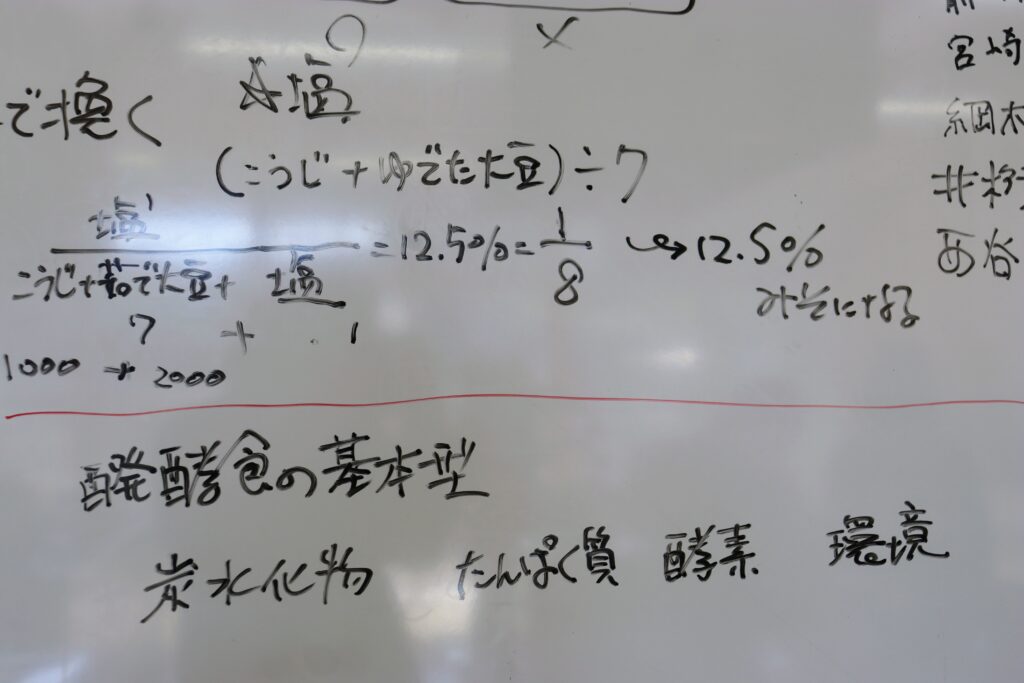 で挽く ☆塩
(こうじ+ゆでた大豆)÷7
塩 1
こうじ+茹で大豆+塩 =12.5%=1/8 → 12.5%
みそになる
7 + 1
1000 → 2000
醗酵食の基本型
炭水化物 たんぱく質 酵素 環境
宮崎
西谷